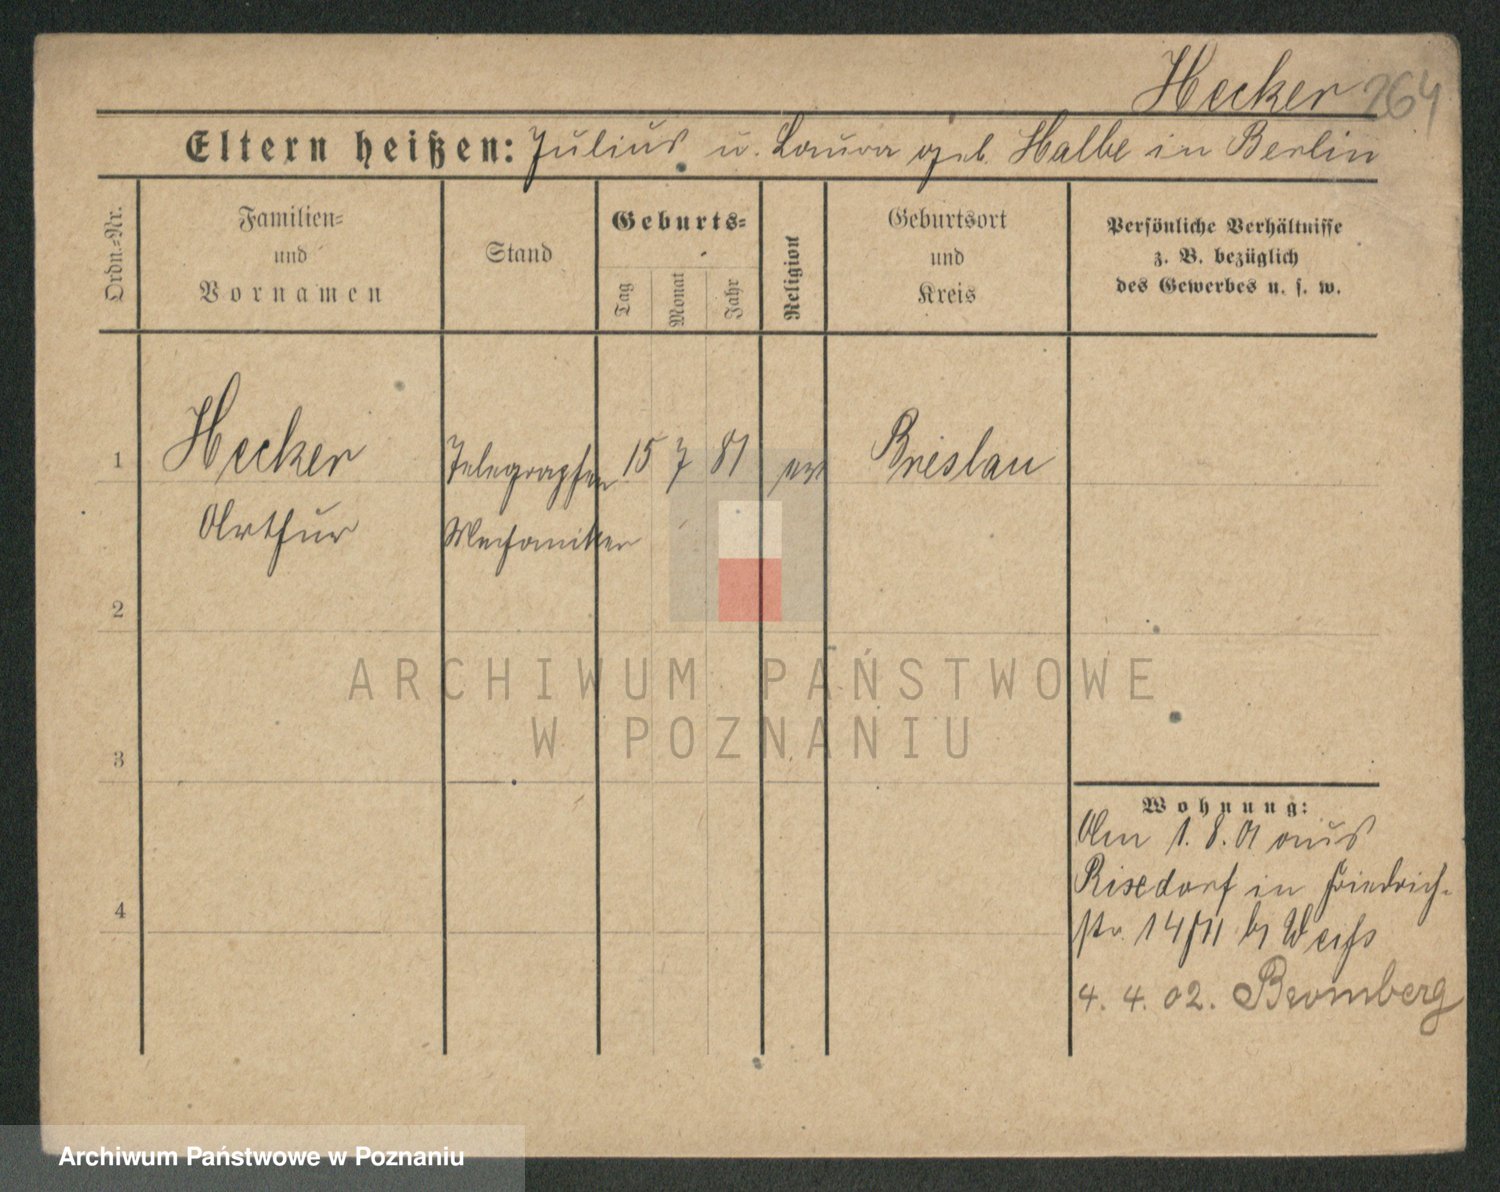 Hecker 264
Eltern heißen: Julius u. Laura geb. Halbe in Berlin
Ordn.-Nr.
Familien-
und
Vornamen
Stand
Geburts-
Tag
Monat
Jahr
Religion
Geburtsort
und
Kreis
Persönliche Verhältnisse
z. B. bezüglich
des Gewerbes u. s. w.
1 Hecker Telegraphen 15 7 81 ev Breslau
Arthur Mechaniker
2
3
4
Wohnung:
Am 1. 8. 01 aus
Rixdorf in Friedrich-
str. 14/II b/ Weiss
4. 4. 02. Bromberg
ARCHIWUM PAŃSTWOWE
W POZNANIU
Archiwum Państwowe w Poznaniu